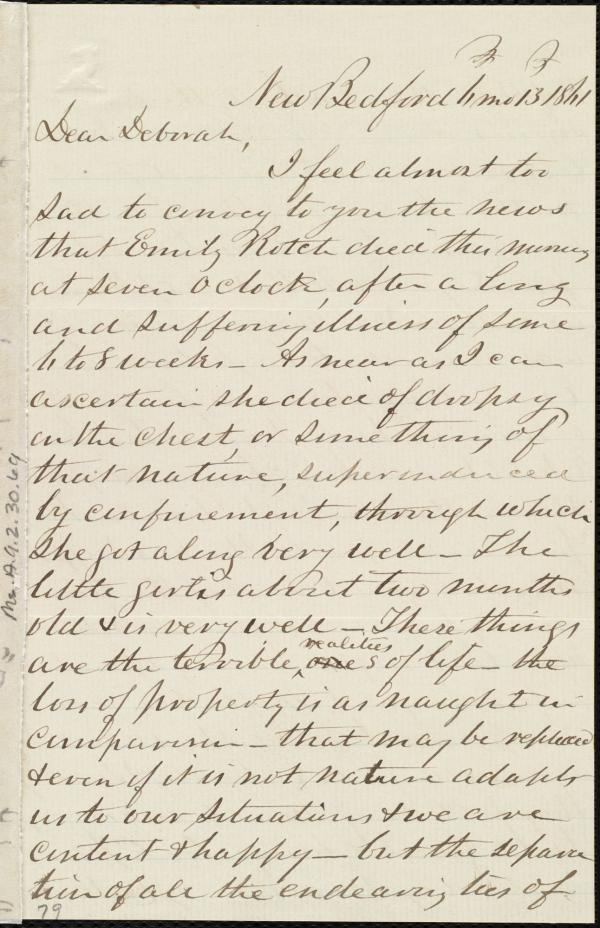 New Bedford 6 mo 13 1861
Dear Deborah,
I feel almost too
sad to convey to you the news
that Emily Rotch died this morning
at seven O clock, after a long
and suffering illness of some
6 to 8 weeks - As near as I can
ascertain she died of dropsy
on the chest, or something of
that nature, superinduced
by confinement, through which
she got along very well - The
little girl is about two months
old & is very well - These things
are the terrible realities of life - the
loss of property is as naught in
comparison - that may be replaced
& even if it is not nature adapts
us to our situations & we are
content & happy - but the separa
tion of all the endearing ties of
Ms. A.9.2.30.69
79